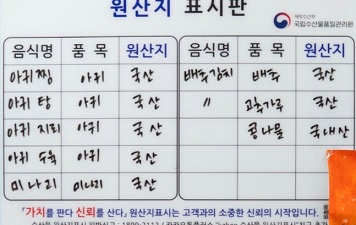 원산지 표시판
해양수산부
국립수산물품질관리원
음식명 품 목 원산지 음식명 품 목 원산지
아귀찜 아귀 국산 배추김치 배추 국산
아귀탕 아귀 국산 〃 고추가루 국산
아귀지리 아귀 국산 콩나물 국내산
아귀수육 아귀 국산
미나리 미나리 국산
"가치를 판다 신뢰를 산다" 원산지표시는 고객과의 소중한 신뢰의 시작입니다.